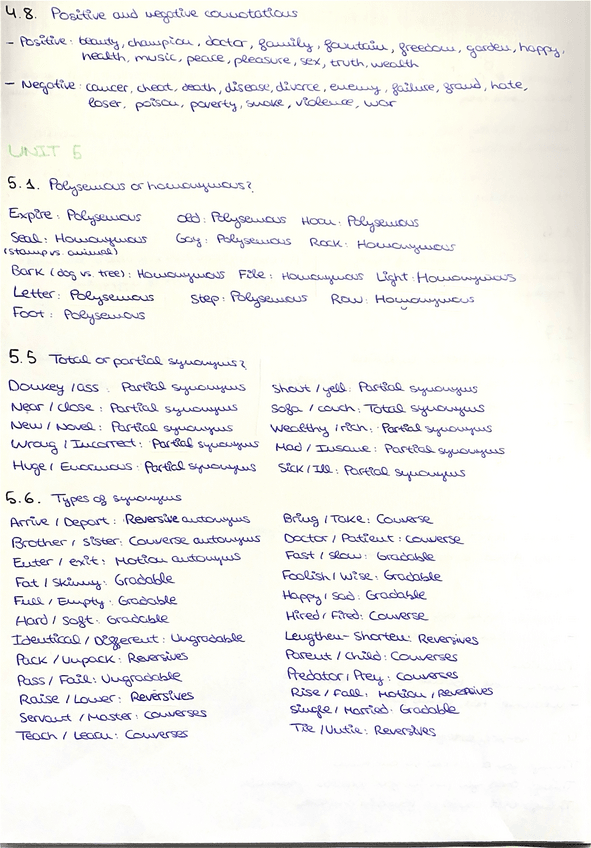 4.8. Positive and negative connotations
- Positive: beauty, champion, doctor, family, fountain, freedom, garden, happy,
health, music, peace, pleasure, sex, truth, wealth
- Negative: cancer, cheat, death, disease, divorce, enemy, failure, fraud, hate,
loser, poison, poverty, smoke, violence, war
UNIT 5
5.1. Polysemous or homonymous?
Expire: Polysemous Old: Polysemous Hoon: Polysemous
Seal: Homonymous Gay: Polysemous Rock: Homonymous
(stamp vs. animal)
Bark (dog vs. tree): Homonymous File: Homonymous Light: Homonymous
Letter: Polysemous Step: Polysemous Row: Homonymous
Foot: Polysemous
5.5 Total or partial synonyms?
Donkey / ass: Partial synonyms Shout / yell: Partial synonyms
Near / close: Partial synonyms Sofa / couch: Total synonyms
New / Novel: Partial synonyms Wealthy / rich: Partial synonyms
Wrong / Incorrect: Partial synonyms Mad / Insane: Partial synonyms
Huge / Enormous: Partial synonyms Sick / Ill: Partial synonyms
5.6. Types of synonyms
Arrive / Depart: Reversive autonyms Bring / Take: Converse
Brother / Sister: Converse autonyms Doctor / Patient: converse
Enter / exit: Motion autonyms Fast / slow: Gradable
Fat / Skinny: Gradable Foolish / Wise: Gradable
Full / Empty: Gradable Happy / sad: Gradable
Hard / Soft: Gradable Hired / Fired: Converse
Identical / Different: Ungradable Lengthen - Shorten: Reversives
Pack / Unpack: Reversives Parent / Child: Converses
Pass / Fail: Ungradable Predator / Prey: Converses
Raise / Lower: Reversives Rise / Fall: Motion / Reversives
Servant / Master: Converses Single / Married: Gradable
Teach / Learn: Converses Tie / Untie: Reversives